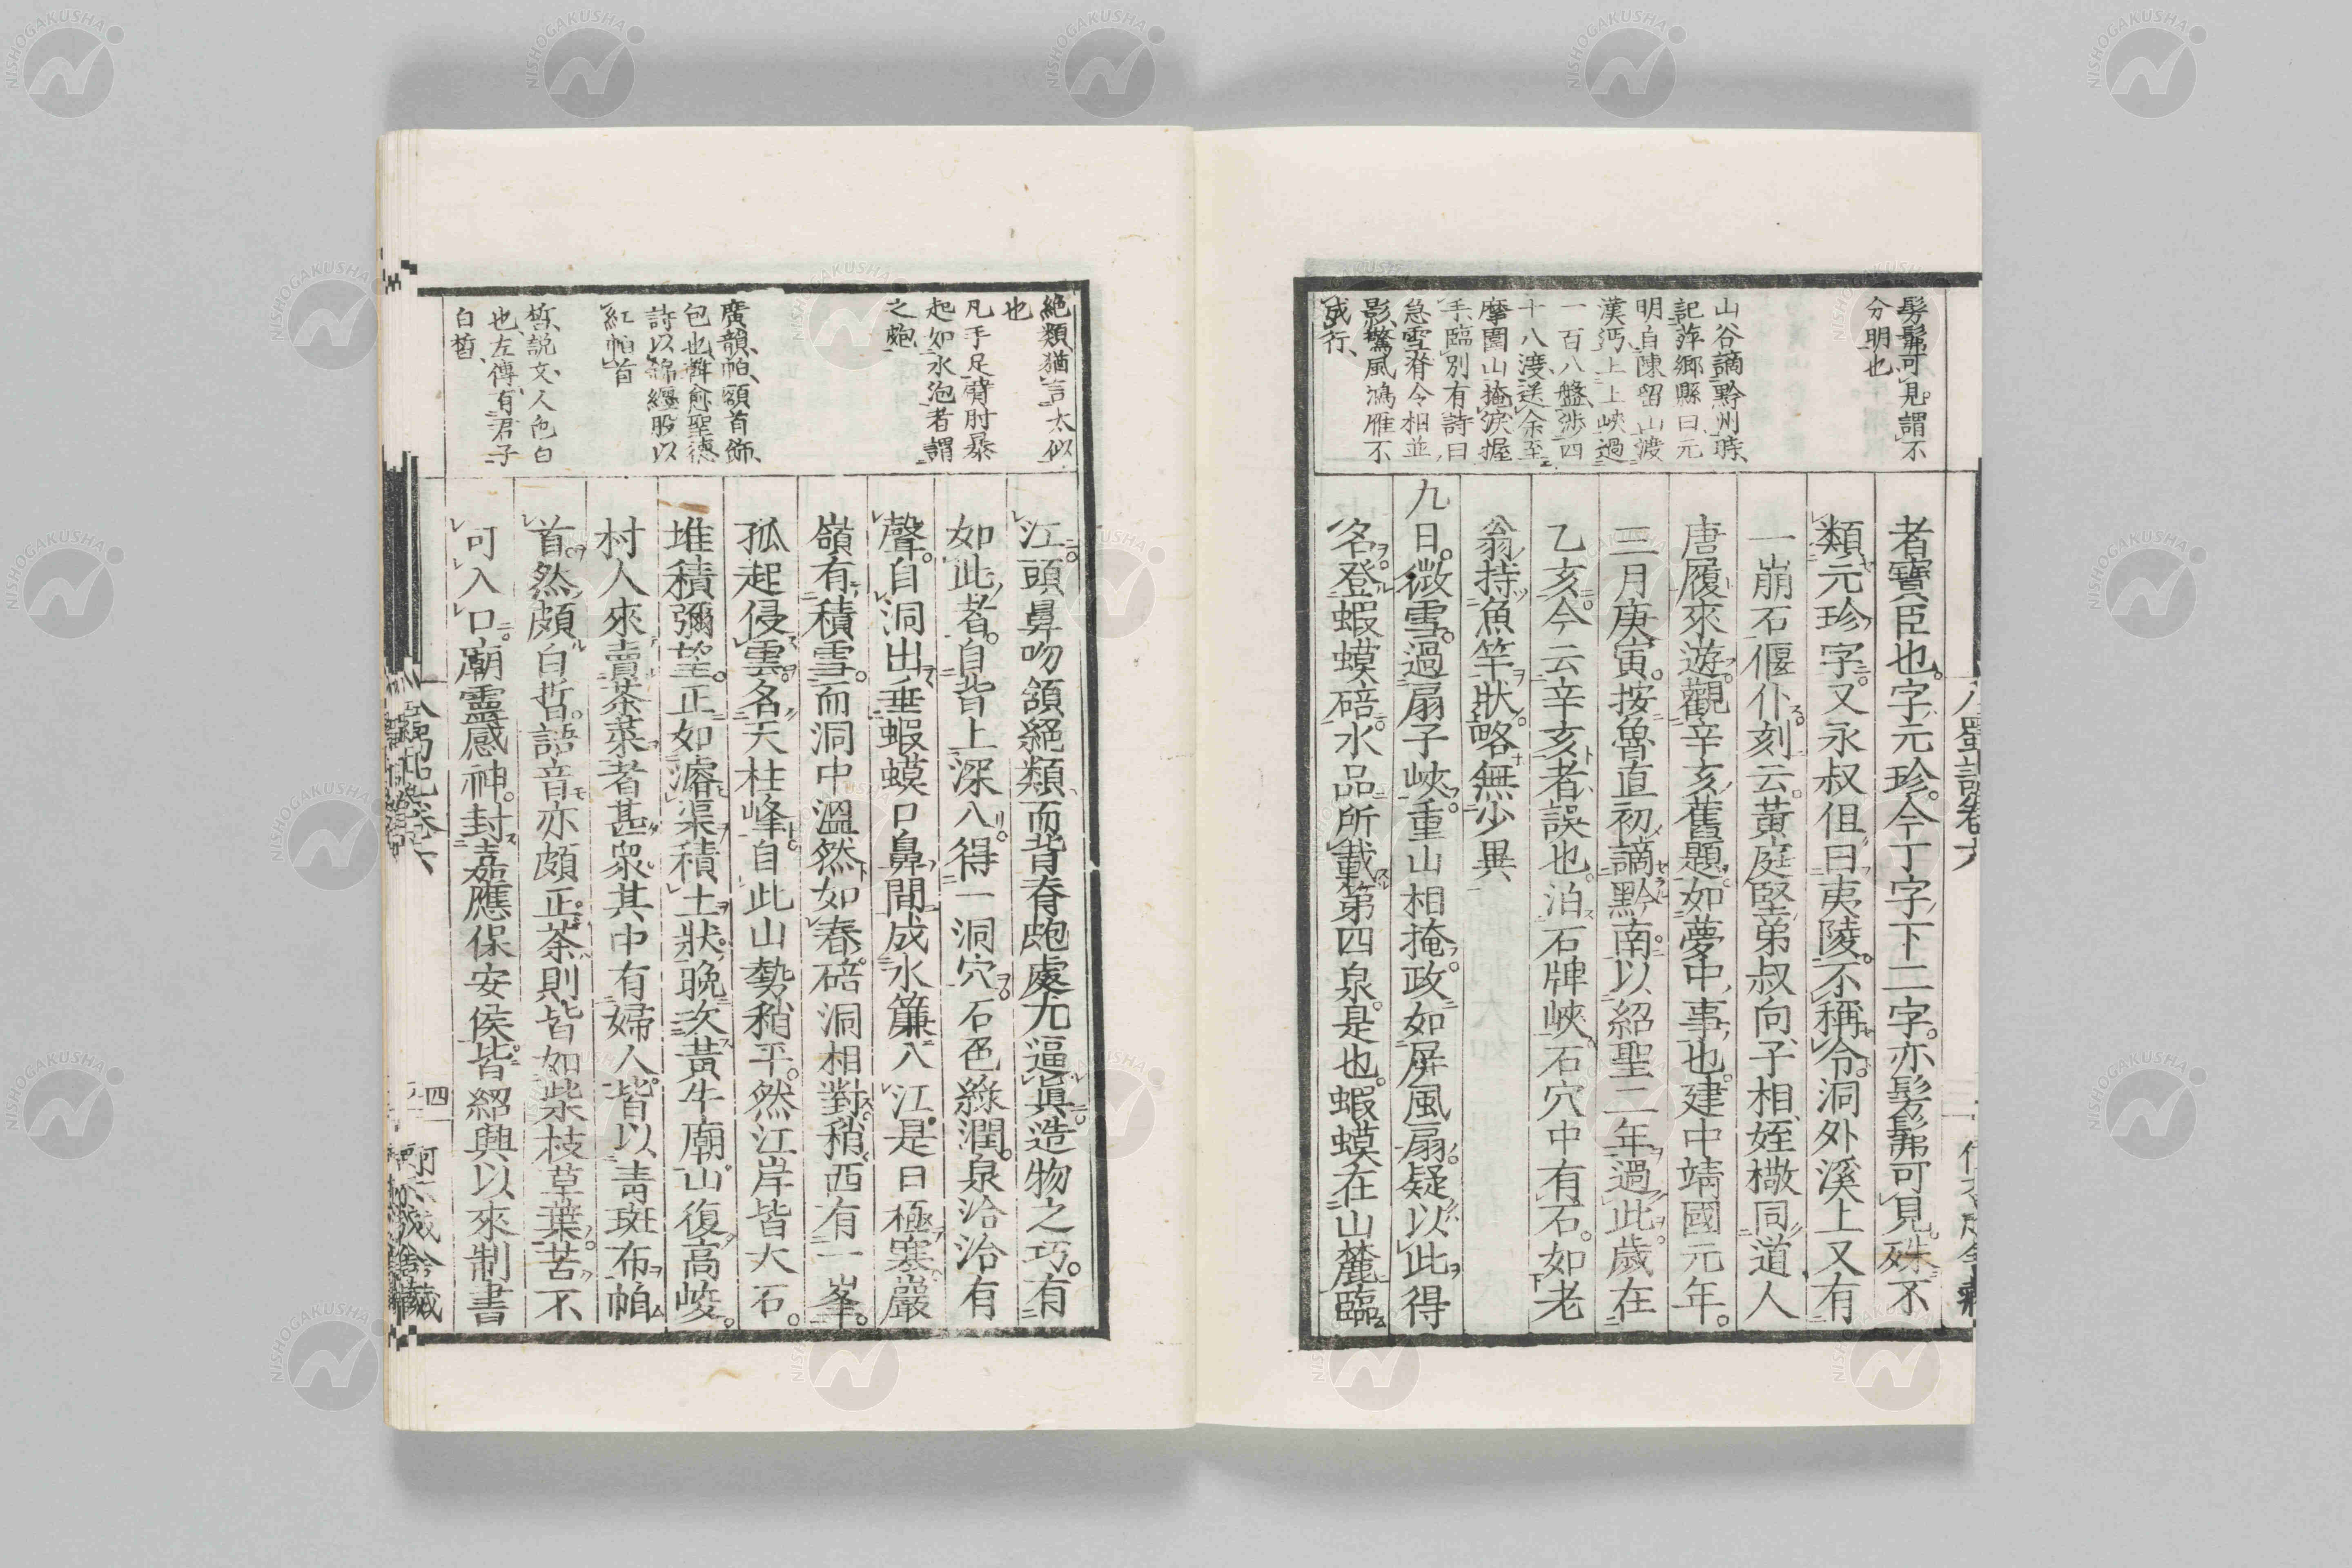 髣髴可見謂不
分明也
山谷謫黔州時
記萍鄉縣曰元
明自陳留山渡
漢沔上上峽過
一百八盤涉四
十八渡送余至
摩圍山掩淚握
手臨別有詩曰
急雪脊令相並
影驚風鴻雁不
成行
者寶臣也。字元珍。今丁字下二字。亦髣髴可見。殊不
類元珍字。又永叔但曰夷陵。不稱令。洞外溪上又有
一崩石偃仆。刻云。黃庭堅弟叔向子相姪檄同道人
唐履來遊。觀辛亥舊題。如夢中事也。建中靖國元年。
三月庚寅。按魯直初謫黔南。以紹聖二年過此。歲在
乙亥。今云辛亥者誤也。泊石牌峽。石穴中有石。如老
翁持魚竿狀。略無少異
九日。微雪。過扇子峽。重山相掩。政如屏風扇。疑以此得
名。登蝦蟆碚。水品所載第四泉。是也。蝦蟆在山麓。臨
絕類猶言太似
也
凡手足臂肘暴
起如水泡者謂
之皰
廣韻帕額首飾
包也韓愈聖德
詩以錦纏股以
紅帕首
皙說文人色白
也左傳有君子
白皙
江。頭鼻吻頷絕類。而背脊皰處尤逼眞。造物之巧。有
如此者。自背上深入。得一洞穴。石色綠潤。泉泠泠有
聲。自洞出。垂蝦蟆口鼻間。成水簾入江。是日極寒。巖
嶺有積雪。而洞中溫然如春。碚洞相對。稍西有一峯。
孤起侵雲。名天柱峰。自此山勢稍平。然江岸皆大石。
堆積彌望。正如濬渠積土狀。晚次黃牛廟。山復高峻。
村人來賣茶菜者甚衆。其中有婦人。皆以靑斑布帕
首。然頗白皙。語音亦頗正。茶則皆如柴枝草葉。苦不
可入口。廟靈感神。封嘉應保安侯。皆紹興以來制書
入蜀記卷六
四